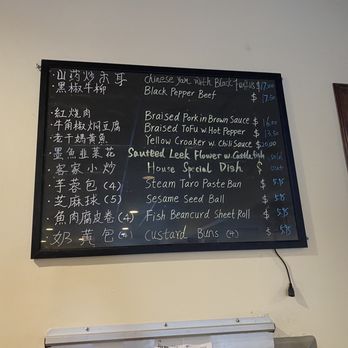 · 山药炒木耳 Chinese Yam with Black Fungus $17.00
· 黑椒牛柳 Black Pepper Beef $17.50
· 红烧肉 Braised Pork in Brown Sauce $16.00
· 牛角椒焖豆腐 Braised Tofu w. Hot Pepper $13.50
· 老干媽黄魚 Yellow Croaker w. Chili Sauce $20.00
· 墨魚韭菜花 Sauteed Leek Flower w. Cuttlefish sold
· 客家小炒 House Special Dish $ out
· 手蓉包 (4) Steam Taro Paste Bun $ 5.95
· 芝麻球 (5) Sesame Seed Ball $ 5.95
· 魚肉腐皮卷 (4) Fish Beancurd Sheet Roll $ 5.95
· 奶黄包 (4) Custard Buns (4) $ 5.95